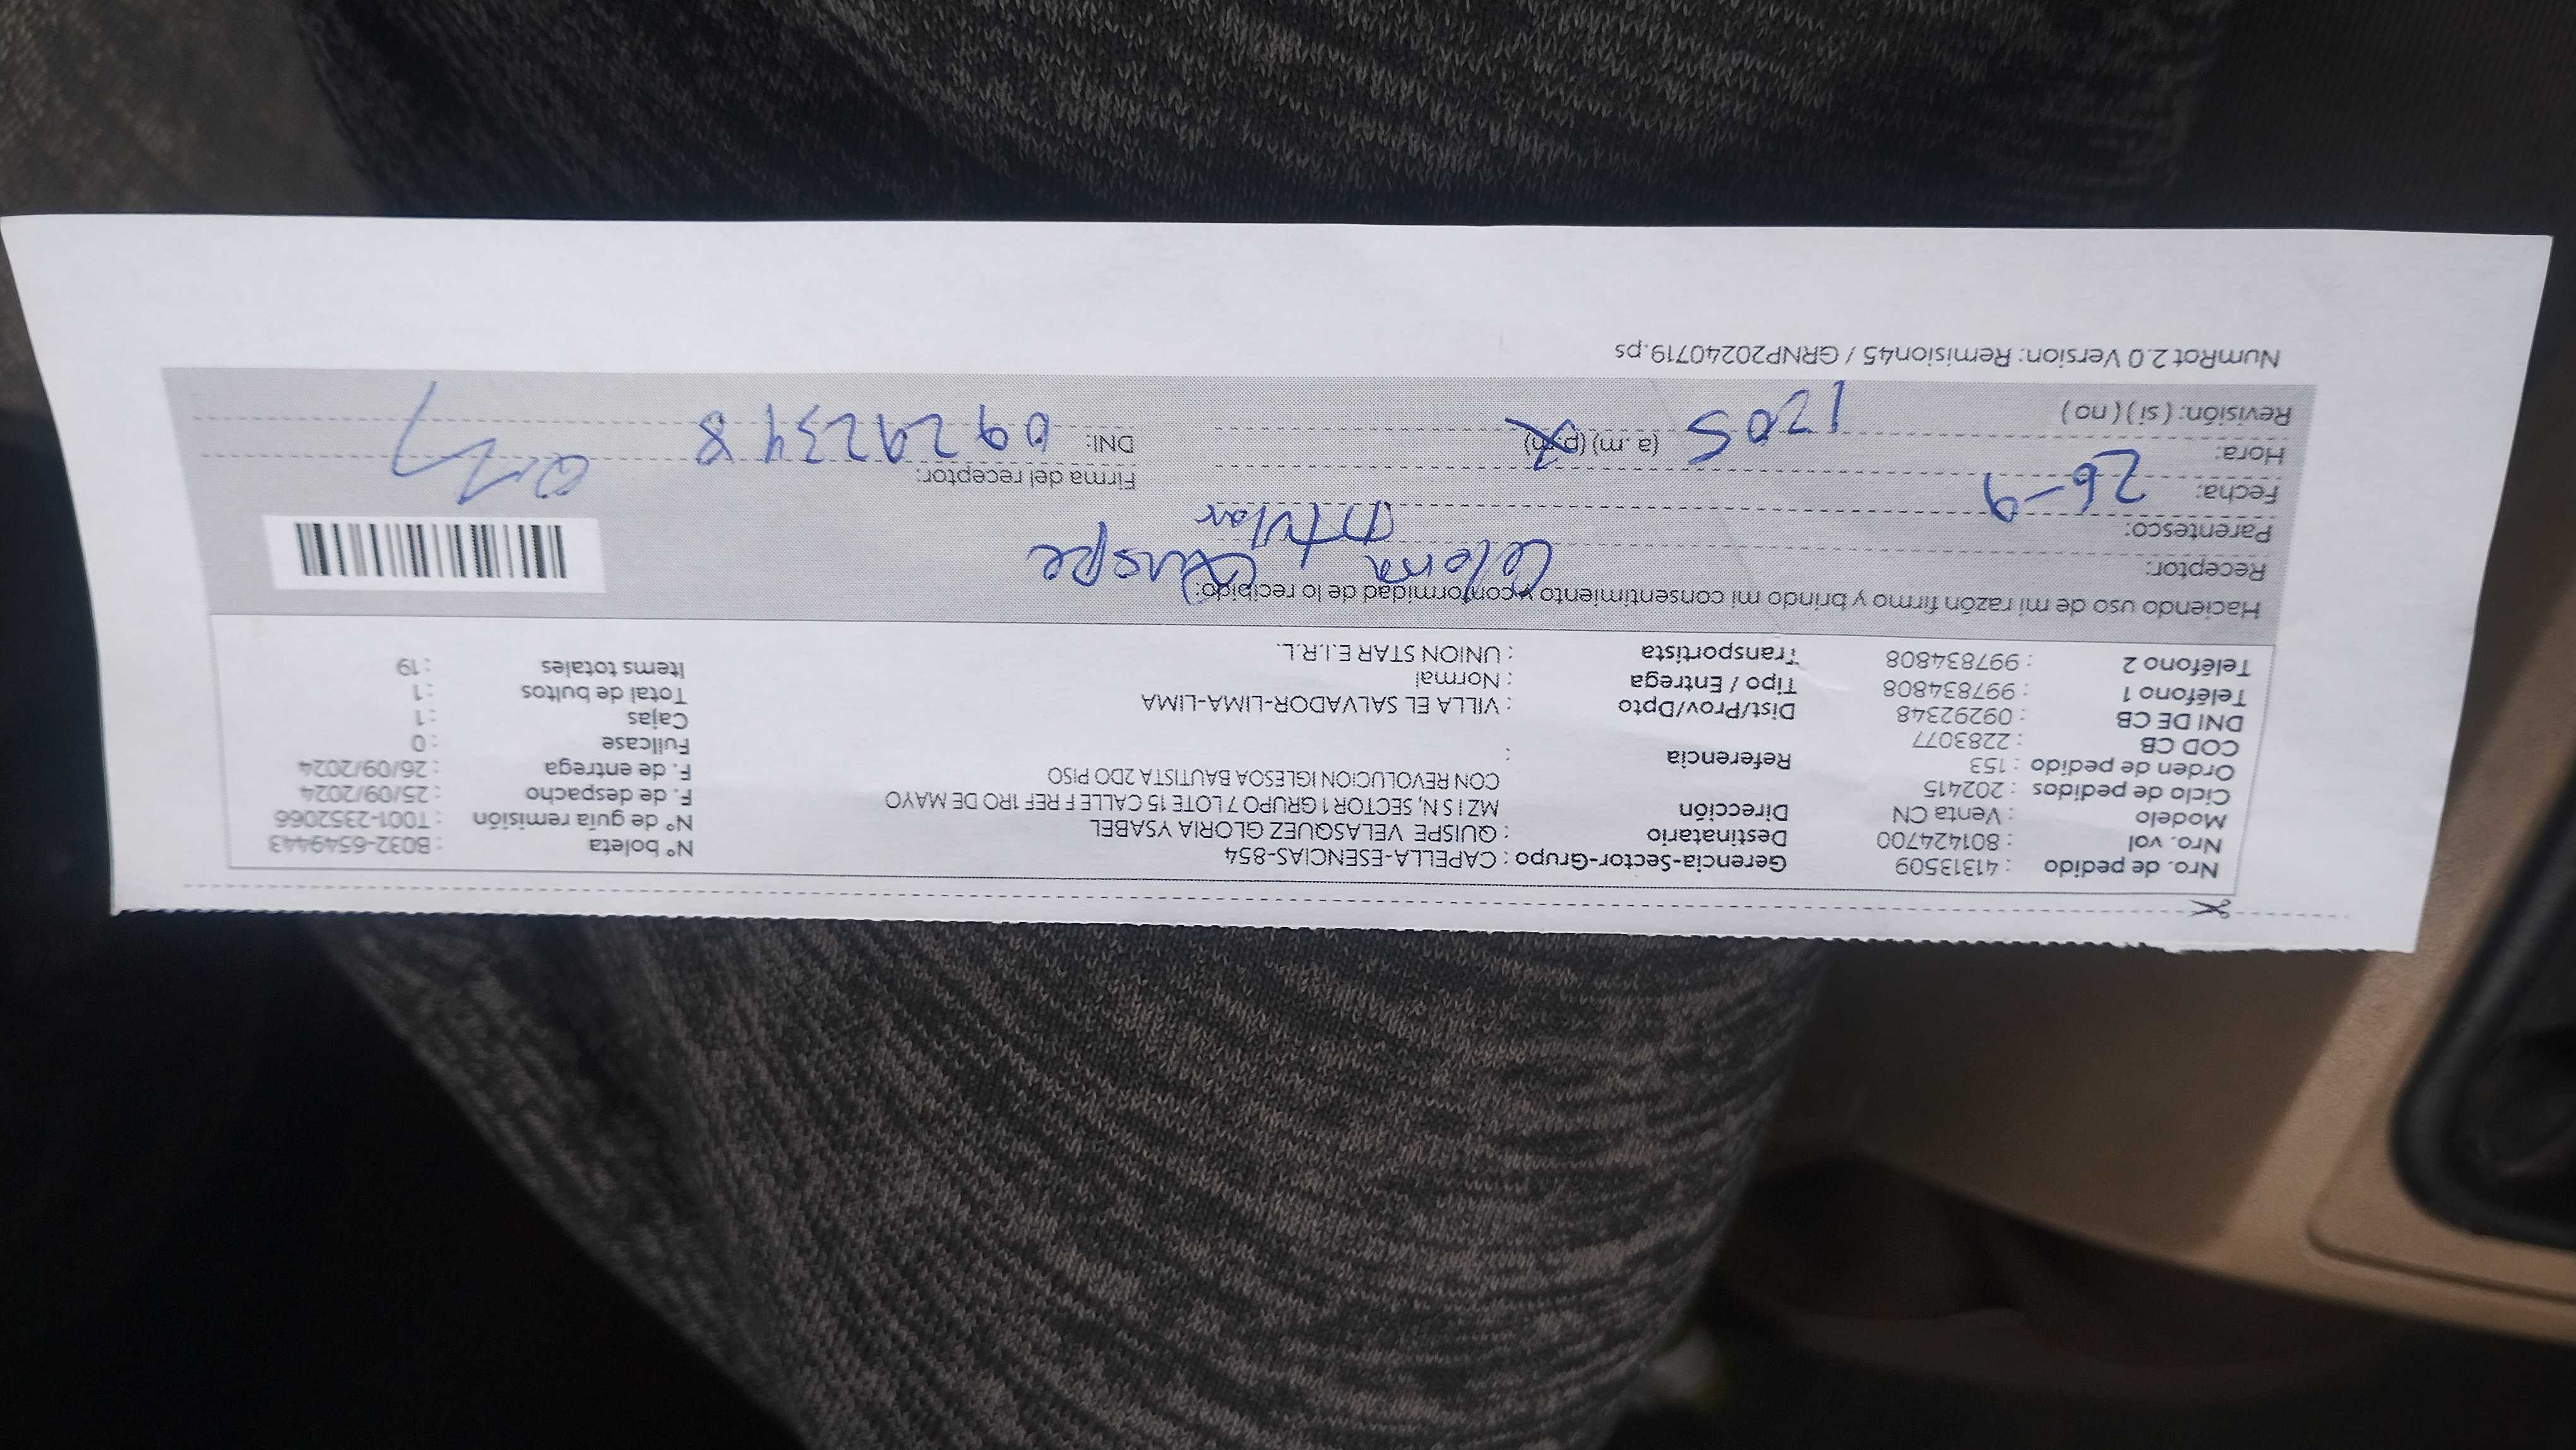 Nro. de pedido : 41313509 Gerencia-Sector-Grupo : CAPELLA-ESENCIAS-854 N° boleta : B032-6549443
Nro. vol : 801424700 Destinatario : QUISPE VELASQUEZ GLORIA YSABEL N° de guía remisión : T001-2352066
Modelo : Venta CN Dirección MZ I S N, SECTOR 1 GRUPO 7 LOTE 15 CALLE F REF 1RO DE MAYO F. de despacho : 25/09/2024
Ciclo de pedidos : 202415 CON REVOLUCION IGLESOA BAUTISTA 2DO PISO F. de entrega : 26/09/2024
Orden de pedido : 153 Referencia : Fullcase : 0
COD CB : 2283077 Dist/Prov/Dpto : VILLA EL SALVADOR-LIMA-LIMA Cajas : 1
DNI DE CB : 09292348 Tipo / Entrega : Normal Total de bultos : 1
Teléfono 1 : 997834808 Transportista : UNION STAR E.I.R.L. Items totales : 19
Teléfono 2 : 997834808
Haciendo uso de mi razón firmo y brindo mi consentimiento y conformidad de lo recibido:
Receptor: Quispe
Parentesco: titular
Fecha: 26-9 Firma del receptor:
Hora: 1205 (a.m) (p.m) DNI: 09292348
Revisión: ( si ) ( no )
NumRot 2.0 Version: Remision45 / GRNP20240719.ps